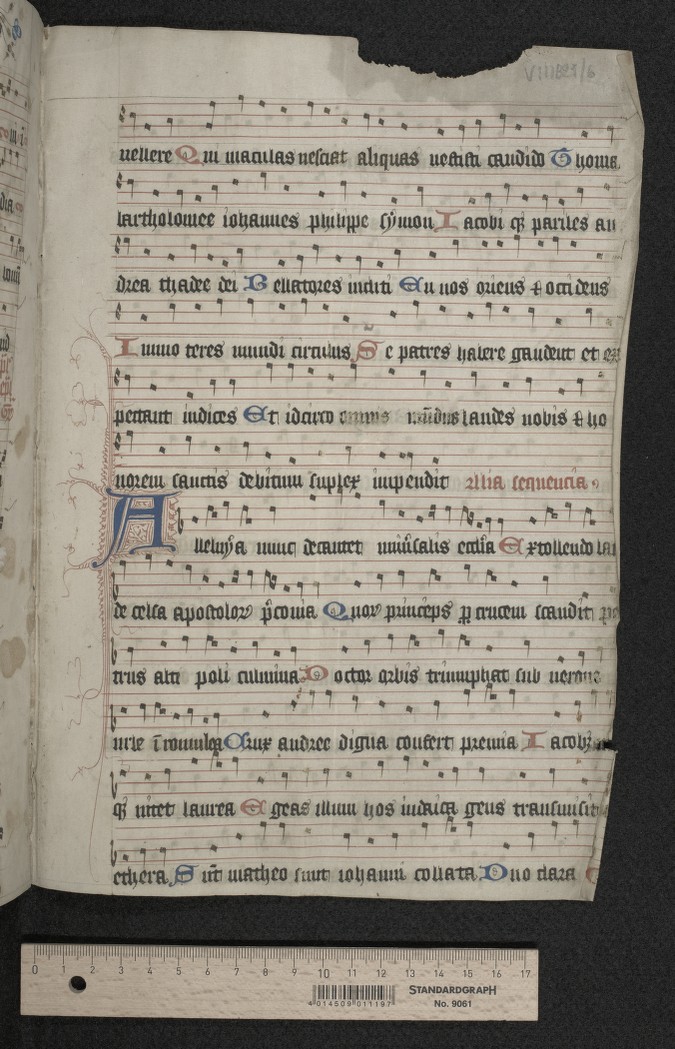 VIII821/6
uellere Qui maculas nesciat aliquas uestiti candido Thoma
bartholomee iohannes philippe symon Iacobi qꝫ pariles an
drea thadee dei Bellatores incliti En uos oriens ⁊ occidens
Immo teres mundi circulus Se patres habere gaudent et ex
pectant iudices Et idcirco mūdus laudes uobis ⁊ ho
norem sanctis debitum suplex impendit Allia sequencia
Alleluya nunc decantet uniūsalis ecclīa Extollendo lau
de celsa apostoloꝝ p̄conia Quoꝝ princeps ꝑ crucem scandit
trus alti poli culmina Doctor orbis triumphat sub nerone
urie īromulea Crux andree digna confert premia Iacobꝫ
qꝫ nitet laurea Egeas illum hos iudaica gens transmisit
ethera Sūt matheo simt iohanni collata Duo clara
0 1 2 3 4 5 6 7 8 9 10 11 12 13 14 15 16 17
4 014509 011197
STANDARDGRAPH
No. 9061